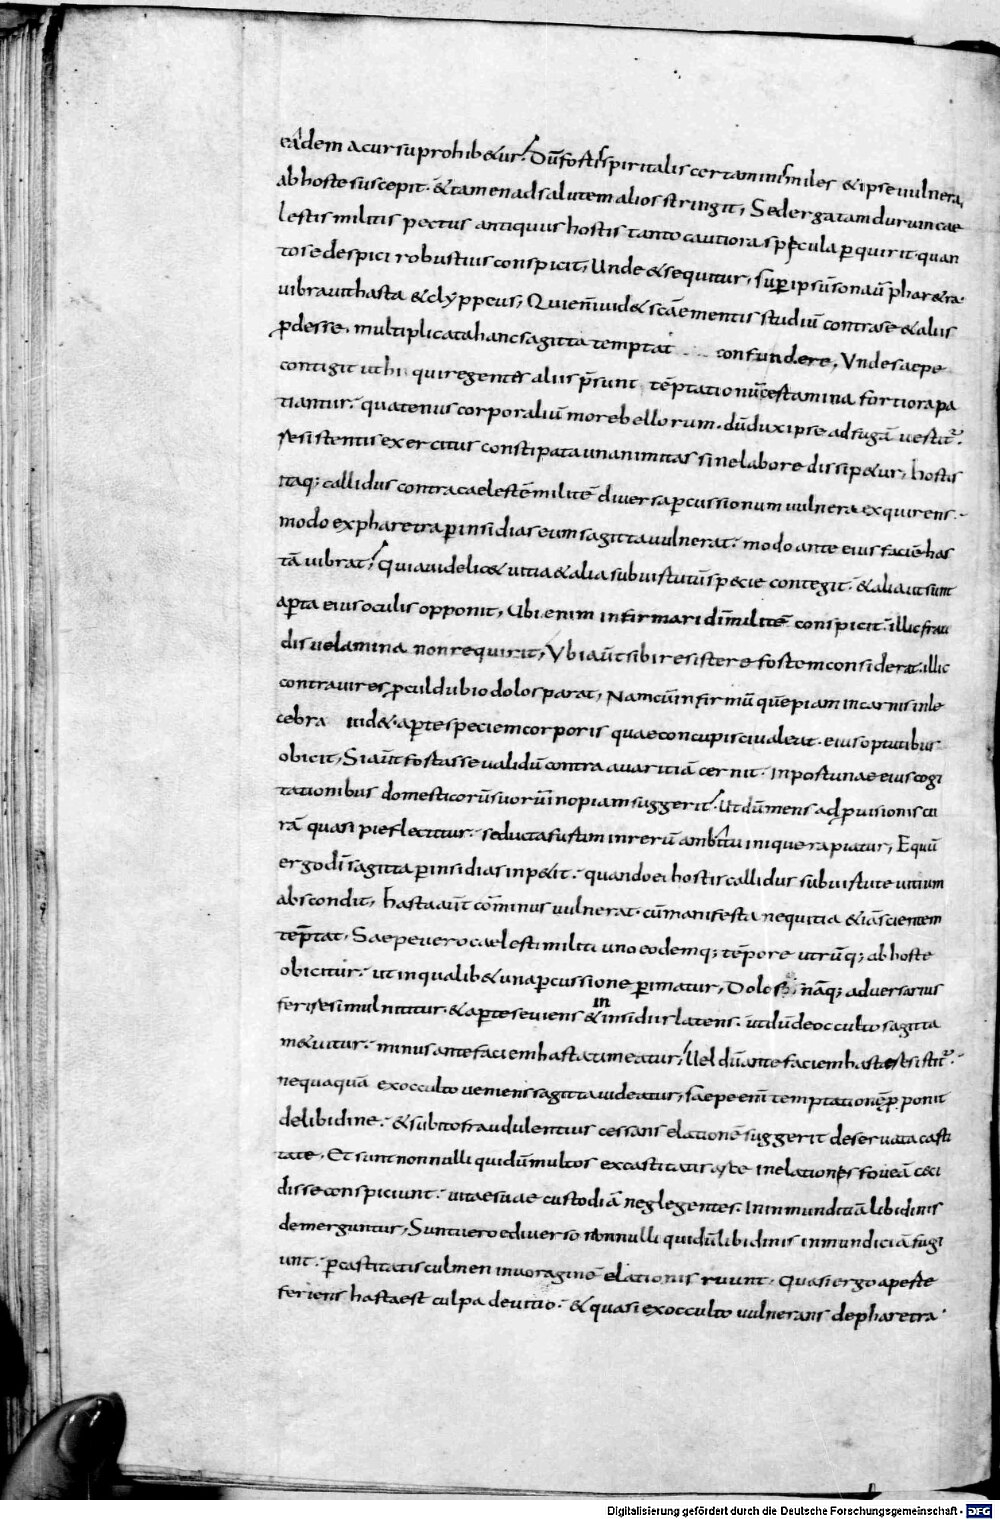 eadem a cursu prohib&ur. Dū fortis spiritalis certaminis miles & ipse vulnera
ab hoste suscepit. & tamen ad salutem alios stringit; Sed erga tam durum cae
lestis militis pectus antiquus hostis tanto cautiora specula perquirit. quan
to se despici robustius conspicit; Unde & sequitur; sup ipsū sonav phar&ra.
vibravit hasta & clyppeus; Qui enī vid& scāe mentis studiū contra se & aliis
pdesse. multiplicata hanc sagitta temptat confundere; Unde saepe
contigit ut hi qui regentes aliis psunt. tēptationū certamina fortiora pa
tiantur. quatenus corporaliū more bellorum. dū dux ipse ad fugā vertitr.
resistentis exercitus constipata unanimitas sine labore dissip&ur; hostis
itaq; callidus contra caelestē militē diversa percussionum vulnera exquirens.
modo ex pharetra p insidias eum sagitta vulnerat. modo ante eius faciē has
tā vibrat; Quia videlic& vitia & alia sub virtutū specie contegit. & alia ut sunt
apta eius oculis opponit; Ubi enim infirmari dī militē conspicit. illic frau
dis velamina non requirit; Ubi aūt sibi resistere fortem considerat. illic
contra vires pcul dubio dolos parat; Nam cū infirmū quēpiam in carnis inle
cebra vid&. apte speciem corporis quae concupisci valeat. eius optutibus
obicit; Si aūt fortasse validū contra avaritiā cernit. inportunae eius cogi
tationibus domesticorū suorū inopiam suggerit. Ut dū mens ad pvisionis cu
rā quasi pie flectitur. seducta furtim in rerū ambitu inique rapiatur; Equū
ergo dī sagitta p insidias inp&it. quando ei hostis callidus sub virtute vitium
abscondit; hasta aūt cōminus vulnerat. cū manifesta nequitia & iā scientem
tēptat; Saepe vero caelesti militi uno eodemq; tēpore utrūq; ab hoste
obicitur. ut in qualib& una pcussione pimatur; Dolosi nāq; adversarius
ferire simul nititur. & apte seviens & in insidiis latens. ut dū de occulto sagitta
m&uitur. minus ante faciem hasta timeatur; Vel dū ante faciem hastae resistitr.
nequaquā ex occulto veniens sagitta videatur; saepe enī temptationē pponit
de libidine. & subito fraudulentius cessans elationē suggerit de servata casti
tate; Et sunt nonnulli qui dū multos ex castitatis arce in elationis foveā ceci
disse conspiciunt. vitae suae custodiā neglegentes. In inmunditiā libidinis
demerguntur; Sunt vero e diverso nonnulli qui dū libidinis inmundiciā fugi
unt. p castitatis culmen in voraginē elationis ruunt; Quasi ergo aperte
feriens hasta est culpa de vitio. & quasi ex occulto vulnerans de pharetra
Digitalisierung gefördert durch die Deutsche Forschungsgemeinschaft - DFG